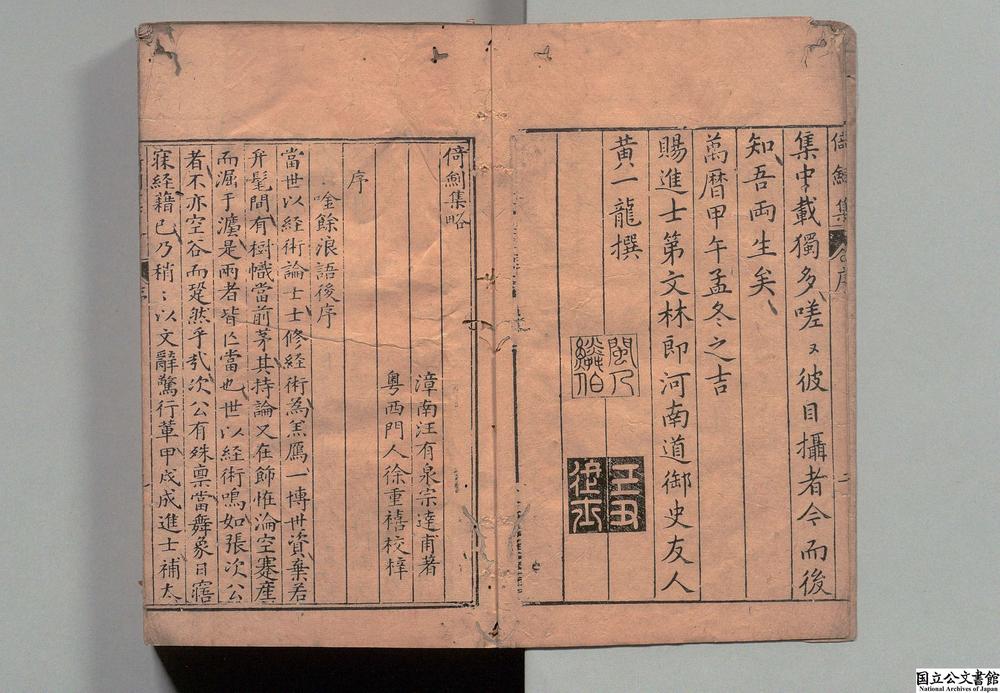 集中載獨多嗟〻彼目攝者今而後
知吾兩生矣
萬曆甲午孟冬之吉
賜進士第文林郎河南道御史友人
黃一龍撰
倚劍集略
漳南汪有泉宗達甫著
粵西門人徐重禧校梓
序
唫餘浪語後序
當世以経術論士士修経術為羔鴈一博世資棄若
弁髦間有樹幟當前茅其持論又在餙帷淪空蹇産
而漘于瀘是兩者皆亾當也世以経術鳴如張次公
者不亦空谷而跫然乎哉次公有殊稟當舞象日窹
寐経籍已乃稍〻以文辭驚行軰甲戌成進士補太
国立公文書館
National Archives of Japan